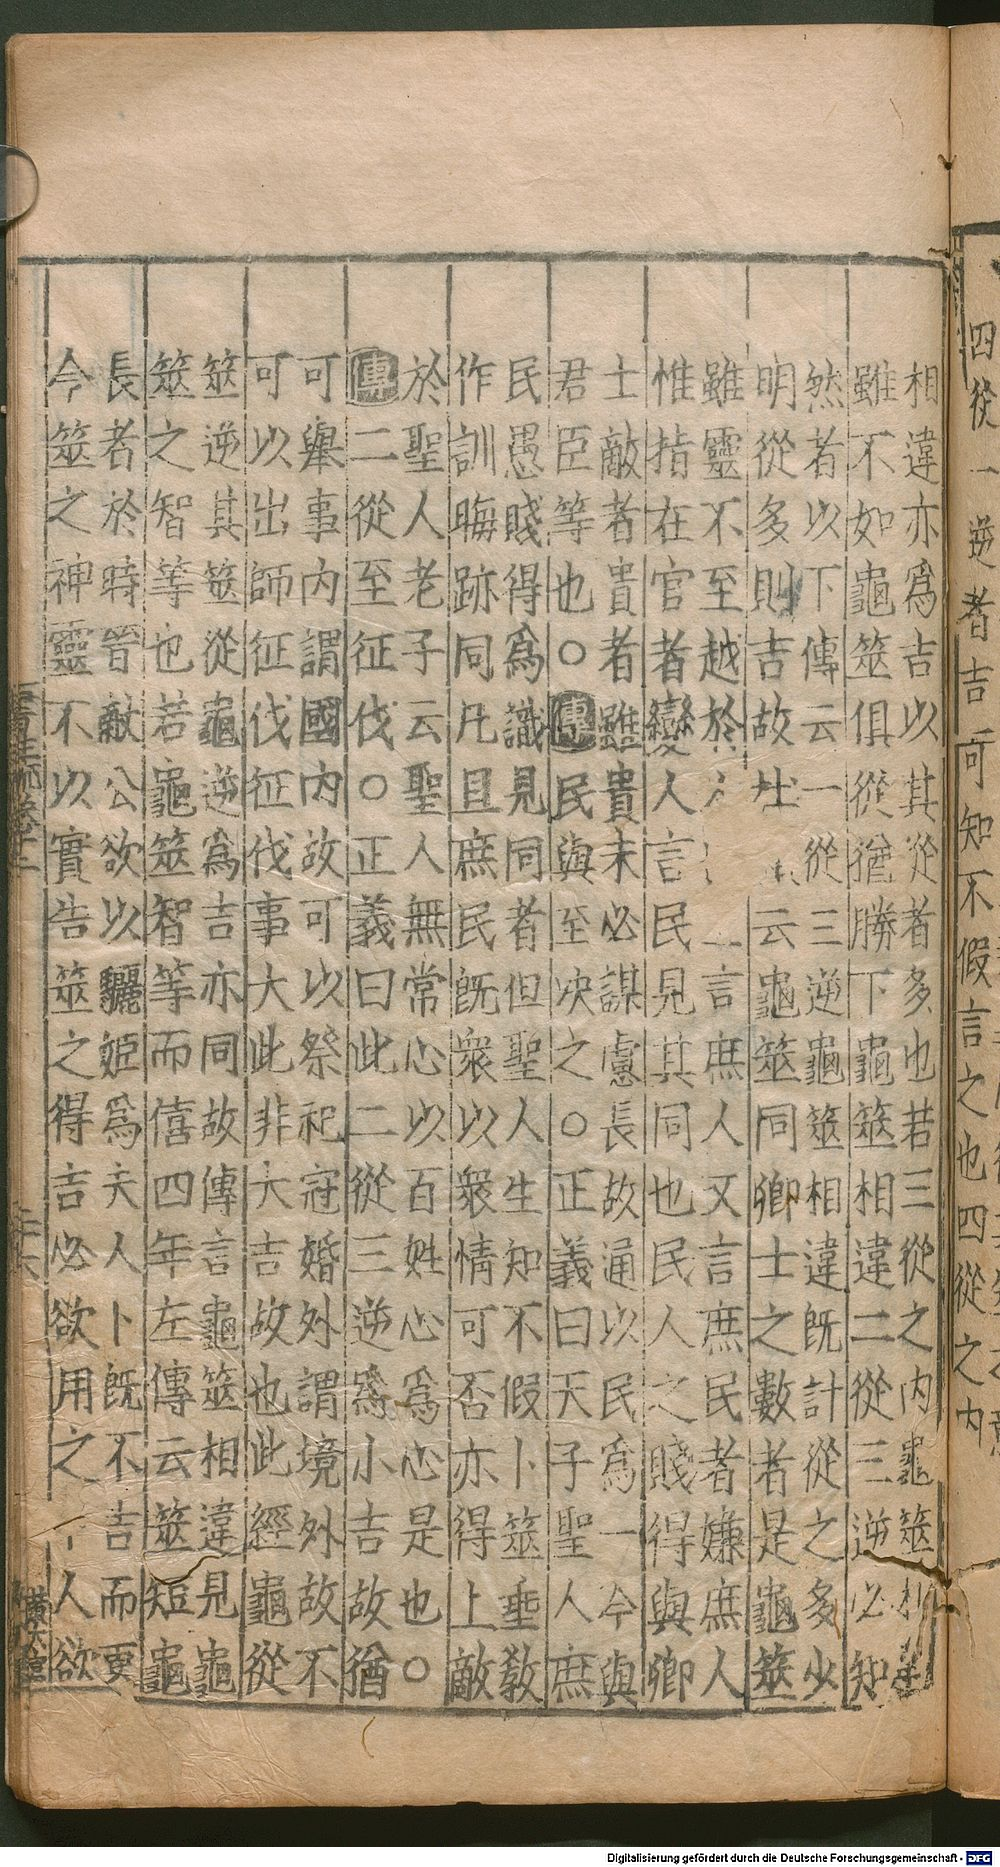 四從一逆者吉可知不假言之也四從之內
相違亦爲吉以其從者多也若三從之內龜筮
雖不如龜筮俱從猶勝下龜筮相違二從三逆必知
然者以下傳云一從三逆龜筮相違既計從之多少
明從多則吉故杜云龜筮同卿士之數者是龜筮
雖靈不至越於言庶人又言庶民者嫌庶人
惟指在官者變人言民見其同也民人之賤得與卿
士敵者貴者雖貴未必謀慮長故通以民爲一今與
君臣等也○傳民與至决之○正義曰天子聖人庶
民愚賤得爲識見同者但聖人生知不假卜筮垂敎
作訓晦跡同凡且庶民旣衆以衆情可否亦得上敵
於聖人老子云聖人無常心以百姓心爲心是也○
傳二從至征伐○正義曰此二從三逆爲小吉故猶
可舉事内謂國内故可以祭祀冠婚外謂境外故不
可以出師征伐征伐事大此非大吉故也此經龜從
筮逆其筮從龜逆爲吉亦同故傳言龜筮相違見龜
筮之智等也若龜筮智等而僖四年左傳云筮短龜
長者於時晉獻公欲以驪姬爲夫人卜旣不吉而更
今筮之神靈不以實告筮之得吉必欲用之卜人欲
Digitalisierung gefördert durch die Deutsche Forschungsgemeinschaft - DFG